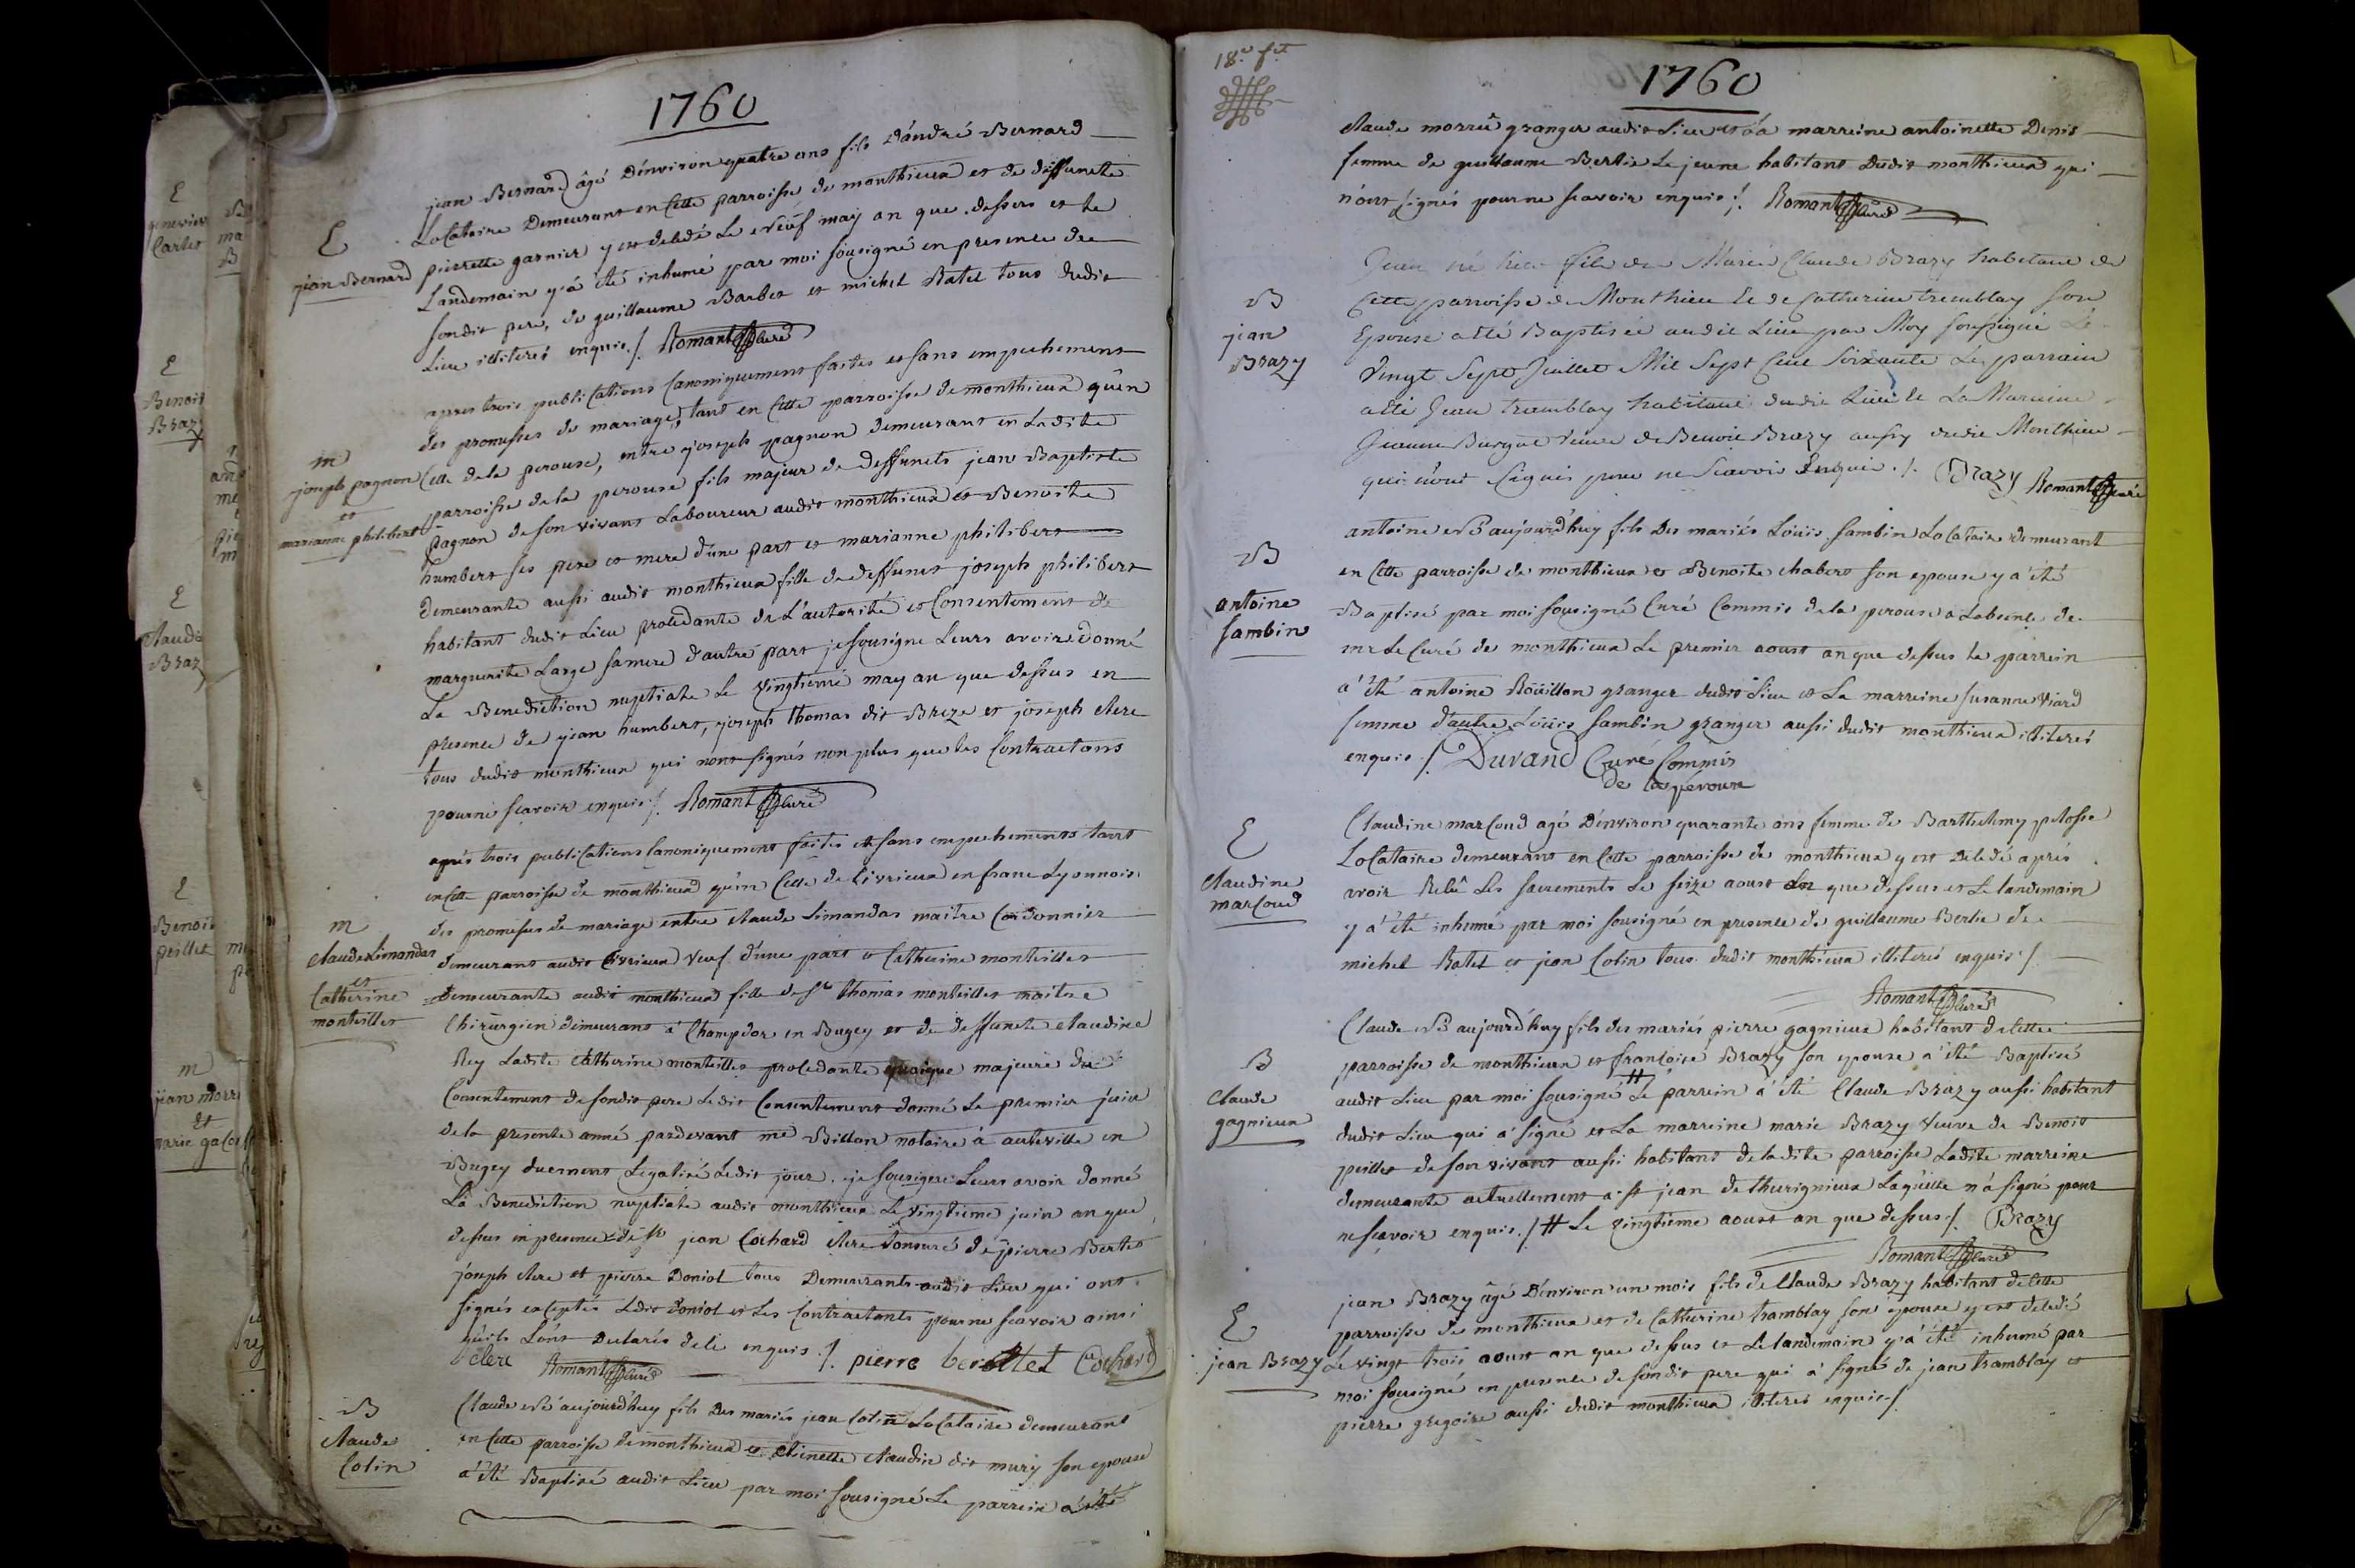 1760
jean Bernard âgé D'environ quatre ans fils D'andré Bernard
Locataire Demeurant en Cette parroisse de monthieux et de deffuncte
E
jean Bernard
pierrette garnier y est decedé Le neuf may an que dessus et le
Landemain y a été inhumé par moi sousigné en presence de
sondit pere, de guillaume Barbet et michel Ratel tous dudit
Lieu illiterés enquis ./. Romant Curé
apres trois publications Canoniquement faites et sans empechement
des promesses de mariage, tant en Cette parroisse de monthieux qu'en
m
joseph pagnon
et
marianne philibert
Celle de la perouse, entre joseph pagnon demeurant en Ladite
parroisse de la perouse fils majeur de deffuncts jean Baptiste
pagnon de son vivant Laboureur audit monthieux et Benoite
humbert ses pere et mere d'une part et marianne philibert
demeurante aussi audit monthieux fille de deffunct joseph philibert
habitant dudit Lieu procedante de L'autorité et Consentement de
marguerite Large sa mere d'autre part je sousigné Leurs avoir donné
La Benediction nuptiale Le vingtieme may an que dessus en
presence de jean humbert, joseph thomas dit Breze et joseph clere
tous dudit monthieux qui n'ont signés non plus que les Contractans
pour ne sçavoir enquis ./. Romant Curé
après trois publications Canoniquement faites et sans empechements tant
en Cette parroisse de monthieux qu'en Celle de Civrieux en franc Lyonnois
m
claude Limandas
et
Catherine
monteiller
des promesses de mariage entre claude Limandas maitre Cordonnier
demeurant audit Civrieux veuf d'une part et Catherine monteiller
demeurante audit monthieux fille de sr thomas monteiller maitre
Chirurgien demeurant à Champdor en Bugey et de deffuncte claudine
Rey Ladite Catherine monteiller procedante quoique majeure du
Consentement de sondit pere Ledit Consentement donné Le premier juin
de la presente anné pardevant me Billon notaire à auteville en
Bugey duement Legalisé Ledit jour. je sousigné Leurs avoir donné
La Benediction nuptiale audit monthieux Le vingtieme juin an que
dessus en presence de sr jean Cochard clere tonsuré de pierre Bertet
joseph clere et pierre Doniol tous Demeurants audit Lieu qui ont
signés exceptés Ledit Doniol et Les Contractants pour ne sçavoir ainsi
qu'ils L'ont Declarés de ce enquis ./. pierre berttet Cochard
clere Romant Curé
B
claude
Colin
Claude né aujourd'huy fils des mariés jean Colin Locataire demeurant
en Cette parroisse de monthieux et etienette claudin dit mury son epouse
a été Baptisé audit Lieu par moi sousigné Le parrein a été
18e ft
1760
claude morrü granger audit Lieu et La marreine antoinette Denis
femme de guillaume Berlie Le jeune habitant Dudit monthieux qui
n'ont signés pour ne sçavoir enquis ./. Romant Curé
B
jean
Brazy
Jean né hier fils de Mariés Claude Brazy habitant de
Cette parroisse de Monthieu Et de Catherine tremblay son
Epouse a été Baptisée audit Lieu par Moy soussigné Le
Vingt Sept Juillet Mil Sept Cent Soixante Le parrain
a été Jean tramblay habitant dudit Lieu Et La Marraine
Jeanne Veuve de Benoit Brazy aussy dudit Monthieu
qui n'ont Signés pour ne Scavoir Enquis ./. Brazy Romant Curé
B
antoine
Sambin
antoine né aujourd'huy fils Des mariés Loüis Sambin Locataire demeurant
en Cette parroisse de monthieux et Benoite chabert son epouse y a été
Baptisé par moi sousigné Curé Commis de la perouse a Labsence de
mr Le Curé de monthieux Le premier aoust an que dessus Le parrein
a été antoine Roüillon granger dudit Lieu et La marreine susanne viard
femme d'autre Loüis Sambin granger aussi dudit monthieux illiterés
enquis ./. Durand Curé Commis
de la pérouse
E
claudine
marcoud
Claudine marcoud agé D'environ quarante ans femme de Barthelemy pelosse
Locataire demeurant en Cette parroisse de monthieux y est decedé aprés
avoir Recû Les sacrements Le seize aoust an que dessus et Le landemain
y a été inhumé par moi sousigné en presence de guillaume Berlie de
michel Ratel et jean Colin tous dudit monthieux illiterés enquis ./.
Romant Curé
B
claude
gagnieux
Claude né aujourd'huy fils des mariés pierre gagnieux habitant de Cette
parroisse de monthieux et francoise Brazy son epouse a été Baptisé
audit Lieu par moi sousigné # Le parrein a été Claude Brazy aussi habitant
dudit Lieu qui a signé et La marreine marie Brazy veuve de Benoit
peillet de son vivant aussi habitant de ladite parroisse Ladite marreine
demeurante actuellement a st jean de thurignieux Laquelle n'a signé pour
ne sçavoir enquis ./. # Le vingtieme aoust an que dessus ./. Brazy
Romant Curé
E
jean Brazy
jean Brazy âgé D'environ un mois fils de Claude Brazy habitant de Cette
parroisse de monthieux et de Catherine tramblay son epouse y est decedé
Le vingt trois aoust an que dessus et Le landemain y a été inhumé par
moi sousigné en presence de sondit pere qui a signé de jean tramblay et
pierre gregoire aussi dudit monthieux illiterés enquis ./.